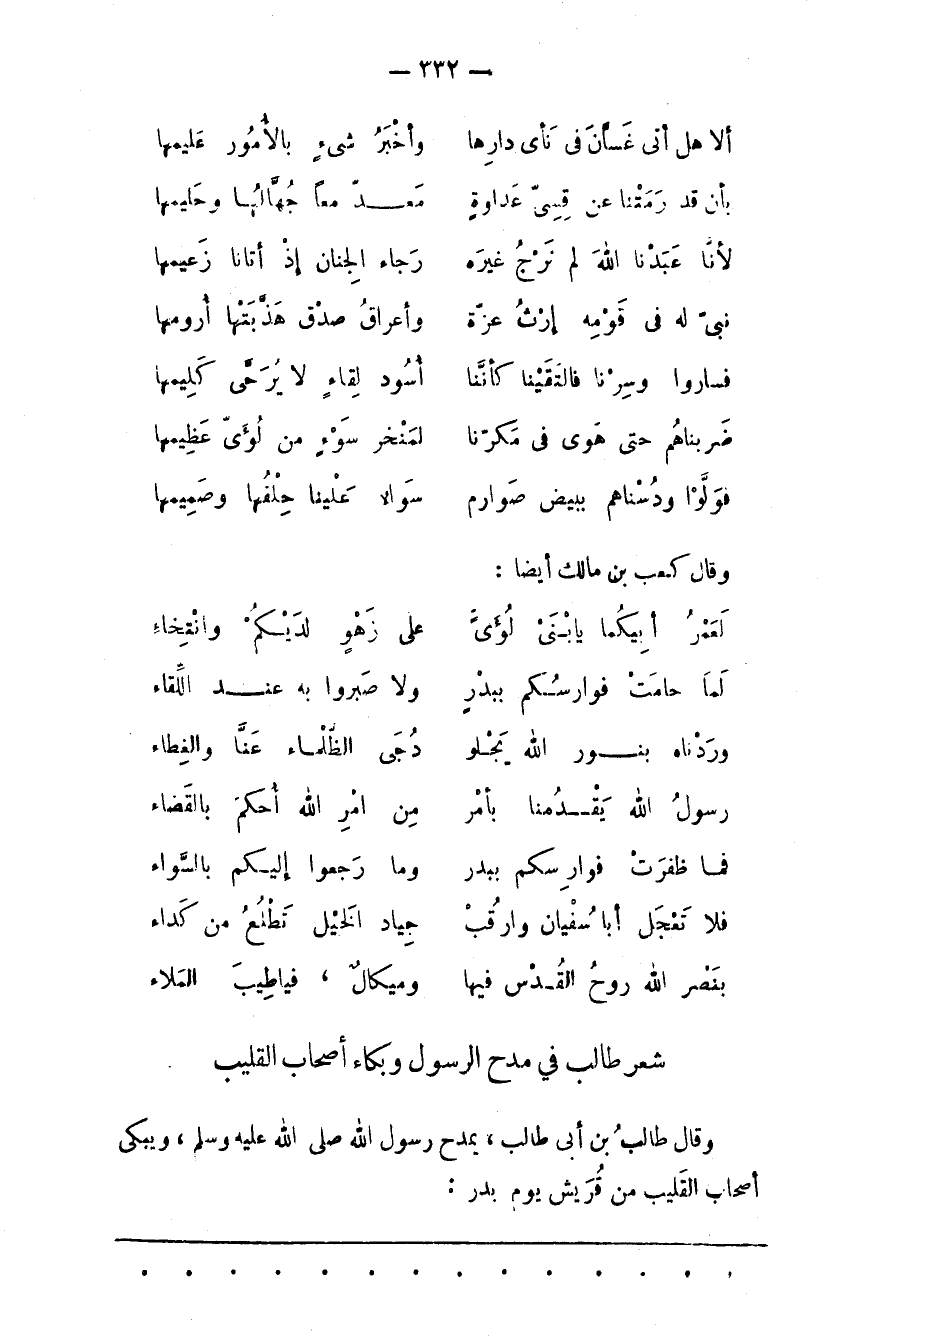 — ٣٣٢ —
ألا هل أتى غَسانَ فى نَأى دارِها وأخْبَرُ شىءٍ بالأُمُور عَليمها
بأن قد رَمَتْنا عن قِسِىّ عَداوةٍ مَعـــدّ معاً جُهَّالُها وحَليمها
لأنَّا عَبَدْنا اللهَ لم نَرْجُ غيرَه رَجاء الجِنان إذْ أتانا زَعيمها
نبىّ له فى قَوْمِه إرْثُ عزّة وأعراقُ صدْق هَذَّبَتْها أُرومها
فساروا وسِرْنا فالتَقَيْنا كأنَّنا أُسُود لِقاءٍ لا يُرَجَّى كَلِيمها
ضَربناهُم حتى هَوى فى مَكرّنا لمَنْخر سَوْءٍ من لُؤَىّ عَظِيمها
فوَلَّوْا ودُسْناهم ببيض صَوارم سَواء عَلْينا حِلْفُها وصَمِيمها
وقال كعب بن مالك أيضا :
لَعَمْرُ أبِيكُما يابْنَىْ لُؤَىّ على زَهْوٍ لدَيْـكُمْ وانْتِخاءِ
لَما حامَتْ فوارسُـكم ببدْرٍ ولا صَبروا به عنـــد اللِّقاء
ورَدْناه بنـــور الله يَجْـلو دُجَى الظَّلْمـاء عَنَّا والغِطاء
رسولُ الله يَقْـدُمنا بأمْر مِن امْرِ الله أُحكمَ بالقَضاء
فمـا ظفرَتْ فوارِسكم ببدر وما رَجعوا إليـكم بالسَّواء
فلا تَعْجَل أبا سُفْيان وارقُبْ جِياد الخَيْل تَطْلُعُ من كَداء
بنَصْر الله روحُ القُـدْس فيها وميكالٌ ، فياطِيبَ المَلاء
شعر طالب في مدح الرسول وبكاء أصحاب القليب
وقال طالبُ بن أبى طالب ، يمدح رسول الله صلى الله عليه وسلم ، ويبكى
أصحاب القَليب من قُرَيش يوم بدر :
. . . . . . . . . . . . . .